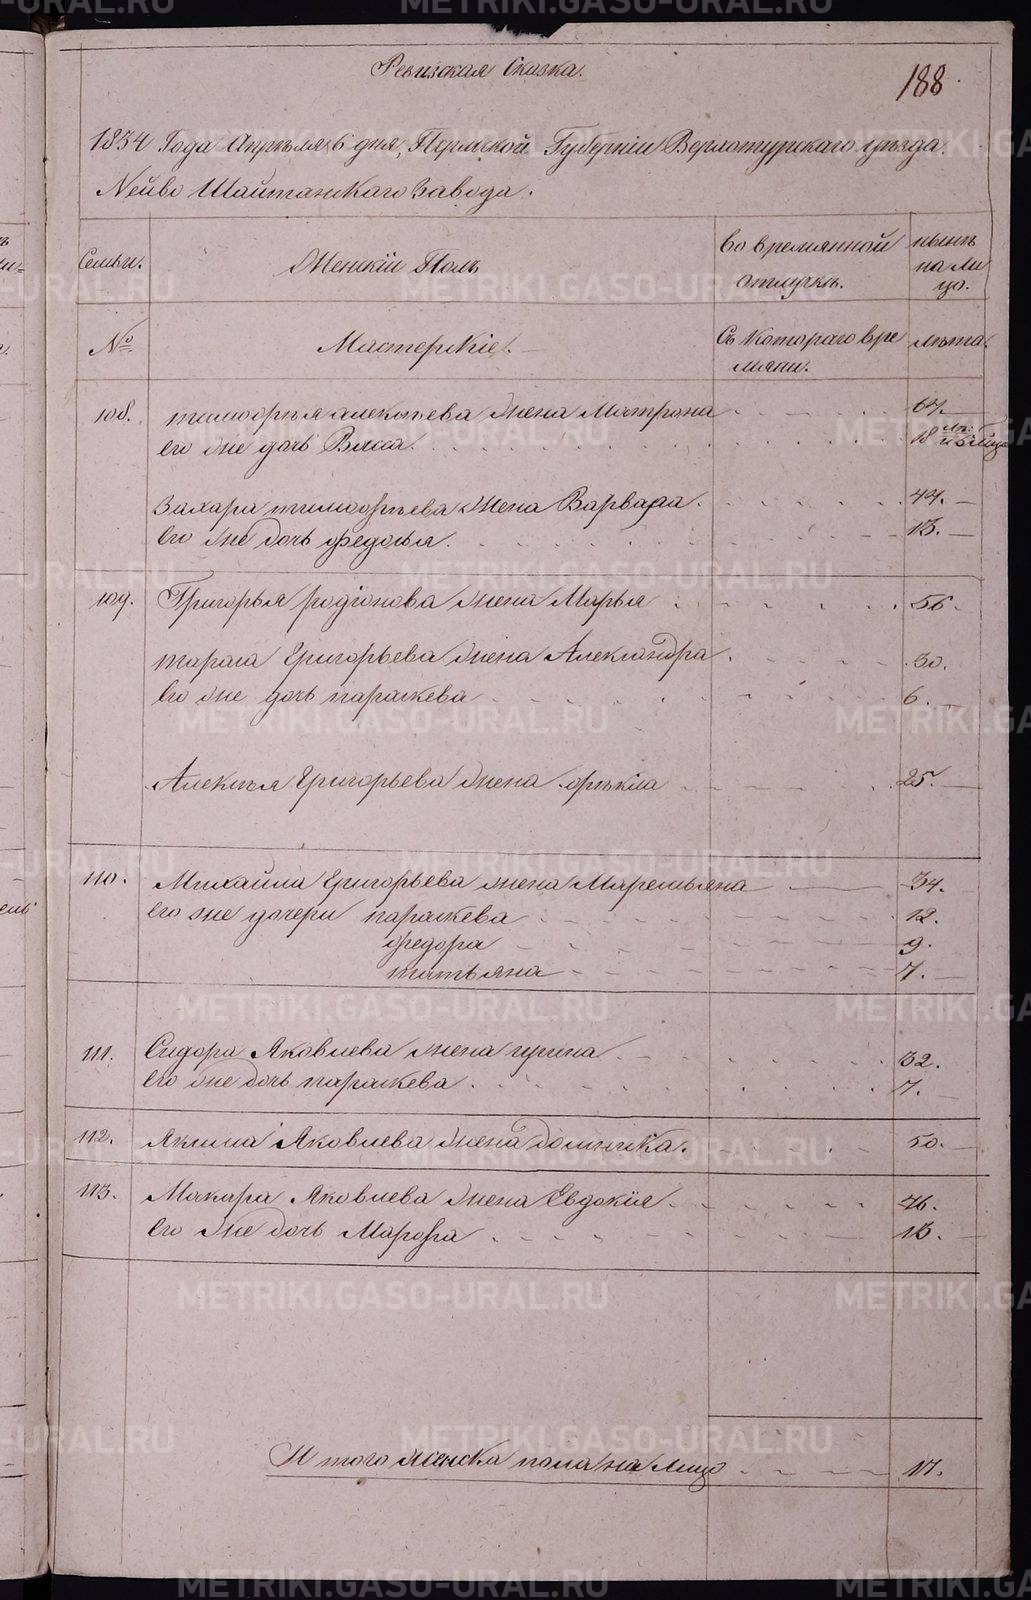 Ревизская Сказка.
188
1834 Года Апреля 6 дня, Пермской Губернiи Верхотурскаго уезда.
Нейво Шайтанскаго Завода.
Семьи.
Женскiй Полъ
во времянной отлучкѣ.
нынѣ на лицо.
№
Мастерскiе.
Съ котораго времяни.
лѣта.
108. тимофѣя алексѣева жена Матрона 67.
его же дочь Васса. 18
Захара тимофѣева жена Варвара. 44.
его же дочь федосья. 13.
109. Григорья родiонова жена Марья 56.
тараса Григорьева жена Александра. 30.
его же дочь параскева 6.
Алексѣя Григорьева жена фѣкла 25.
110. Михайла Григорьева жена Маремьяна 34.
его же дочери параскева 12.
федора 9.
татьяна 7.
111. Сидора Яковлева жена ирина. 32.
его же дочь параскева. 7.
112. Акима Яковлева жена домника. 50.
113. Макара Яковлева жена Евдокiя. 46.
его же дочь Марфа 13.
И того женска пола на лицо 17.
METRIKI.GASO-URAL.RU